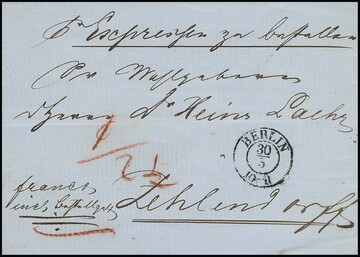 pr Expressen zu bestellen
Sr Wohlgeboren
Herrn Dr Heinr Laehr
1/2 1/2
BERLIN
30
5
franco
incl. Bestellgeld
Zehlendorff